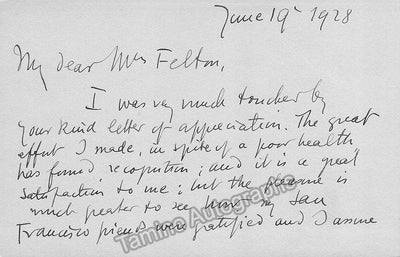 June 19 1928
My dear Mrs Felton,
I was very much touched by
your kind letter of appreciation. The great
effort I made, in spite of a poor health
has found recognition; and it is a great
satisfaction to me; but the pleasure is
much greater to see how my San
Francisco friends were gratified and I assure
Tamino Autographs